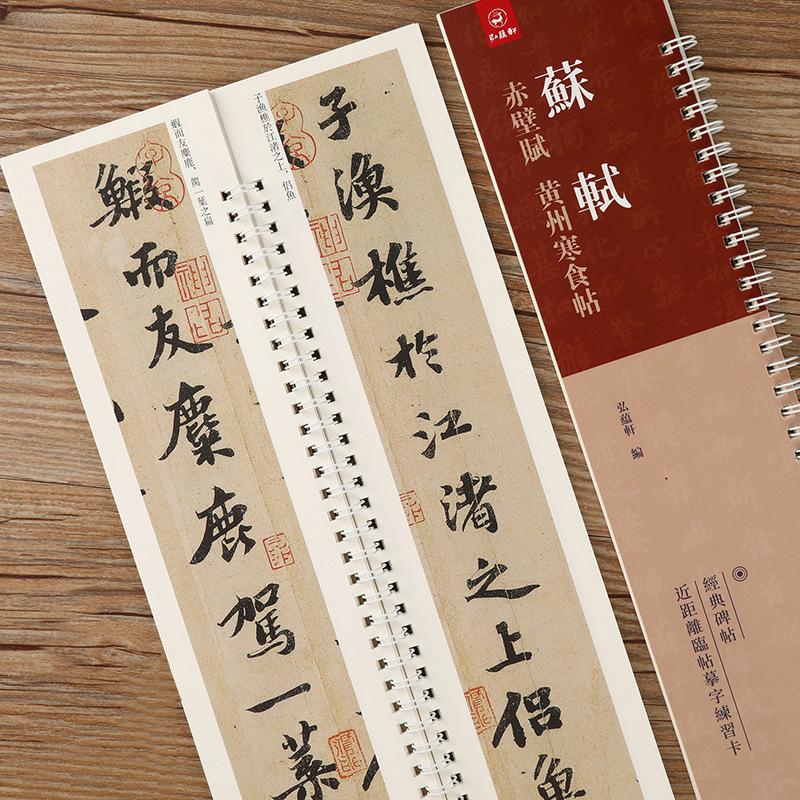 弘蘊軒
蘇軾
赤壁賦 黄州寒食帖
弘蘊軒 編
經典碑帖
近距離臨帖摹字練習卡
子漁樵於江渚之上，侶魚
子漁樵於江渚之上侶魚
蝦而友麋鹿，駕一葉之扁
鰕而友麋鹿駕一葉